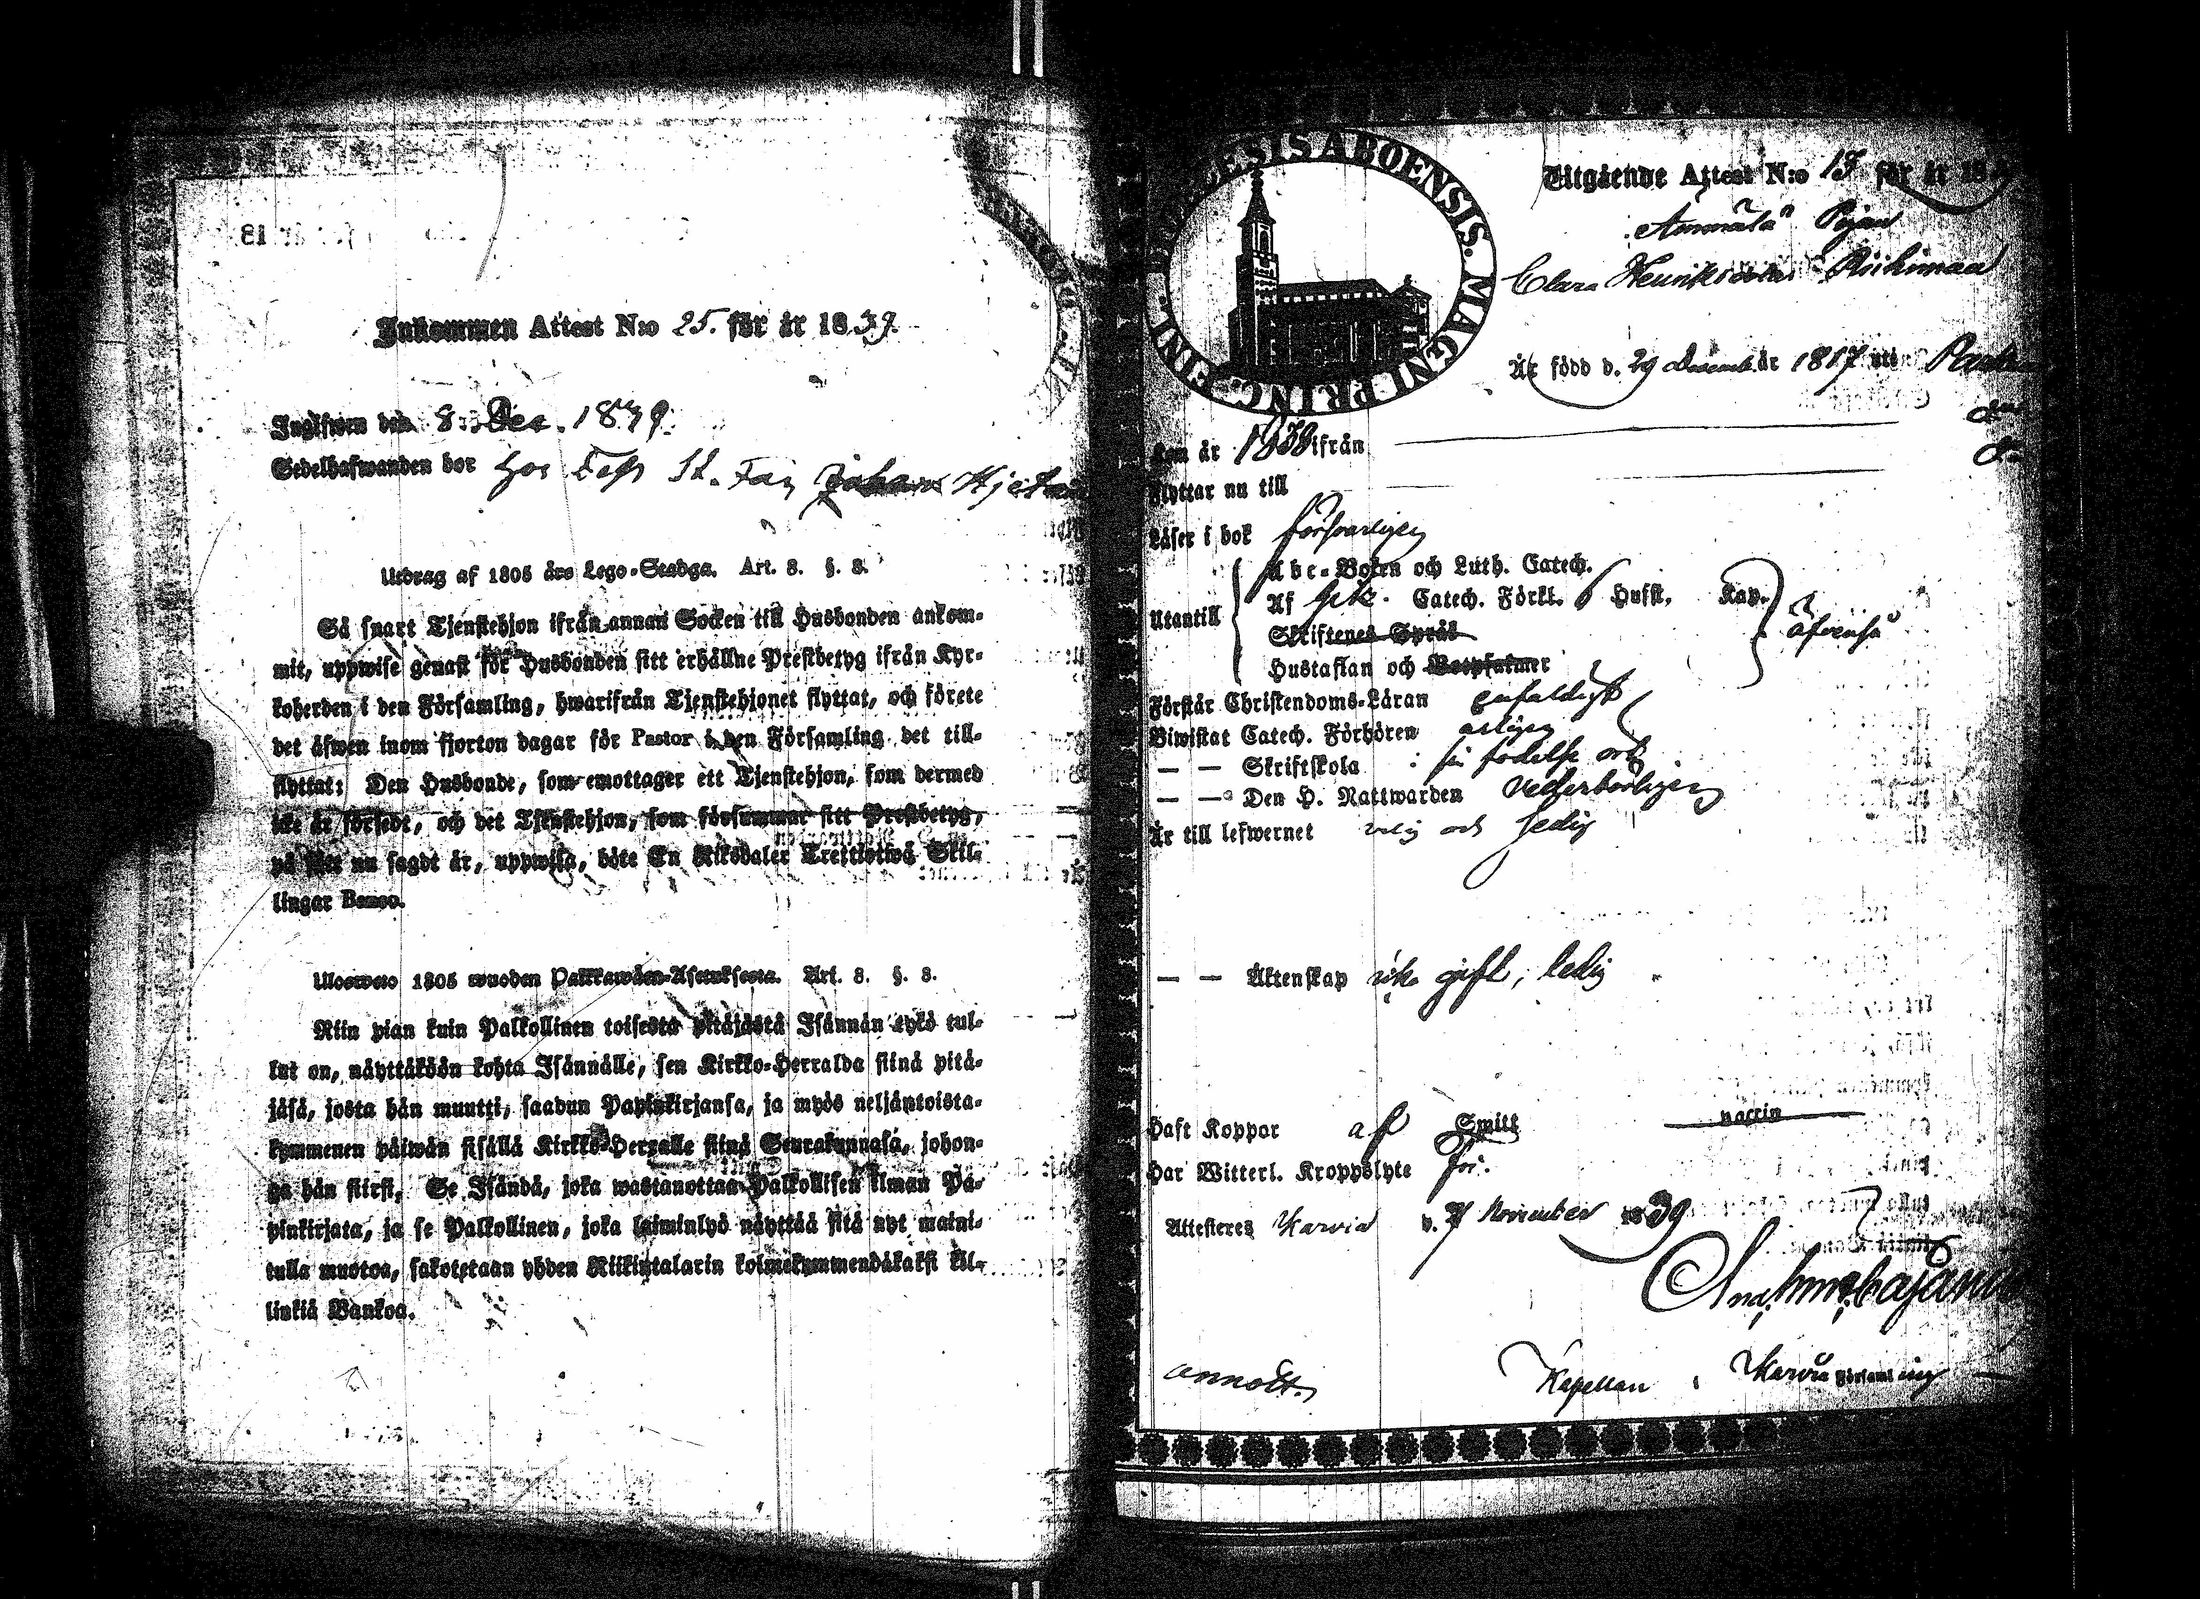 Inkommen Attest N:o 25. för år 1839.
Ingifwen den 8 Dec. 1839.
Sedelhafwanden bor hos
Utdrag af 1805 års Lego-Stadga. Art. 8. §. 8.
Så snart Tjenstehjon ifrån annan Socken till Husbonden ankom-
mit, uppwise genast för Husbonden sitt erhållne Prestbetyg ifrån Kyr-
koherden i den Församling, hwarifrån Tjenstehjonet flyttat, och förete
det äfwen inom fjorton dagar för Pastor i den Församling det till-
flyttat: Den Husbonde, som emottager ett Tjenstehjon, som dermed
icke är försedt, och det Tjenstehjon, som försummar sitt Prestbetyg,
på sätt nu sagdt är, uppwisa, böte En Riksdaler Trettiotwå Skil-
lingar Banco.
Ulosweto 1805 wuoden Palkkawäen-Asetuksesta. Art. 8. §. 8.
Niin pian kuin Palkollinen toisesta pitäjästä Isännän tykö tul-
lut on, näyttäköön kohta Isännälle, sen Kirkko-Herralda siinä pitä-
jäsä, josta hän muutti, saadun Papinkirjansa, ja myös neljäntoista-
kymmenen päiwän sisällä Kirkko-Herralle siinä Seurakunnasa, johon-
ga hän siirsi. Se Isändä, joka wastanottaa Palkollisen ilman Pa-
pinkirjata, ja se Palkollinen, joka laiminlyö näyttää sitä nyt maini-
tulla muotoa, sakotetaan yhden Riikintalarin kolmekymmendäkaksi kil-
linkiä Bankoa.
DIOECESIS ABOENSIS. MAGNI PRINC. FINL.
Utgående Attest N:o 17 för år 18
Pigan
Clara Henriksdotter Riihimaa
Är född d. 29 Decemb. år 1817 uti
Kom år 1838 ifrån
Flyttar nu till
Läser i bok försvarligen
Utantill
Abc-Boken och Luth. Catech.
Af Catech. Förkl. Hufst. Kap.
Skriftenes Språk
Hustaflan och Botpsalmer
Förstår Christendoms-Läran enfaldigt
Biwistat Catech. Förhören årligen
— — Skriftskola i sin födelse ort
— — Den H. Nattwarden vederbörligen
Är till lefwernet ärlig och sedig
— — Äktenskap icke gift, ledig
Haft Koppor af Smitt vaccin
Har Witterl. Kroppslyte för.
Attesteres Karvia d. November 1839
Kapellan i Karvia Församling
annott.